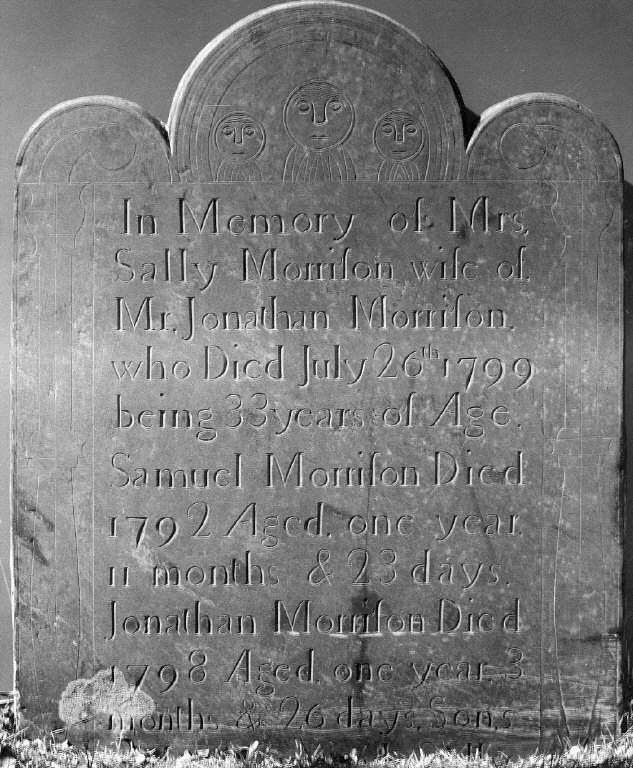 In Memory of Mrs.
Sally Morriſon wife of
Mr. Jonathan Morriſon.
who Died July 26th 1799
being 33 years of Age.
Samuel Morriſon Died
1792 Aged, one year,
11 months & 23 days.
Jonathan Morriſon Died
1798 Aged, one year, 3
months & 26 days, Sons